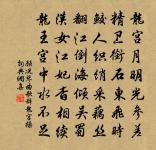 龍宮月明光參差
精衛銜石東飛時
鮫人織綃采藕絲
翻江倒海傾吳蜀
漢女江妃杳相續
龍王宮中水不足
顧況琴曲歌辭龍宮操